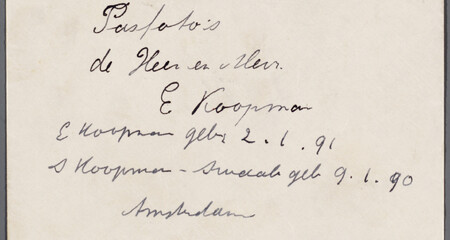 Pasfoto's
de Heer en Mevr.
E Koopman
E Koopman geb. 2.1.91
S Koopman - geb 9.1.90
Amsterdam